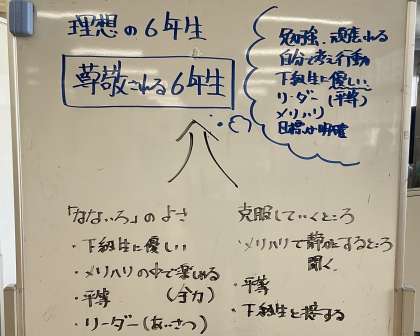 理想の6年生
尊敬される6年生
勉強、頑張れる
自分で考え行動
下級生に優しい
リーダー(平等)
メリハリ
目標が明確
「なないろ」のよさ
・下級生に優しい
・メリハリの中で楽しめる
(全力)
・平等
・リーダー(あいさつ
克服していくところ
・メリハリで静かにするところ
聞く
・平等
・下級生と接する